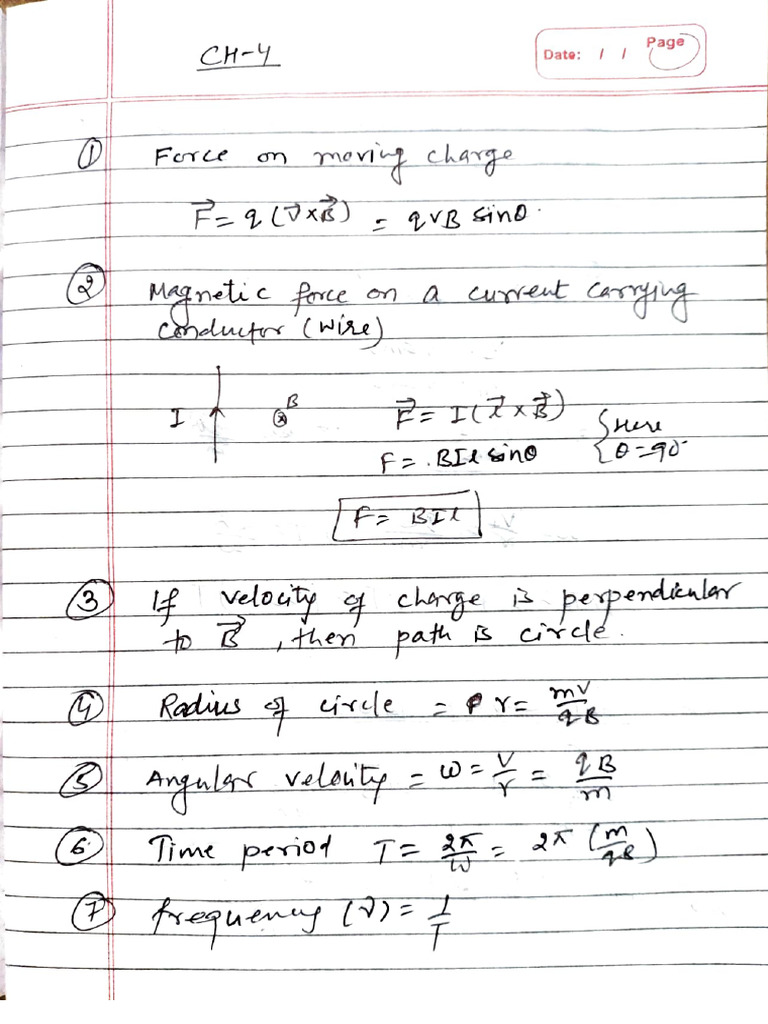 CH-4
Date: / / Page
① Force on moving charge
F⃗ = q (v⃗ × B⃗) = qvB sinθ.
② Magnetic force on a current carrying
conductor (wire)
I B F⃗ = I (l⃗ × B⃗) { Here
F = BIl sinθ { θ = 90°
F = BIl
③ If velocity of charge is perpendicular
to B⃗, then path is circle.
④ Radius of circle = r = mv/qB
⑤ Angular velocity = ω = v/r = qB/m
⑥ Time period T = 2π/ω = 2π (m/qB)
⑦ frequency (ν) = 1/T